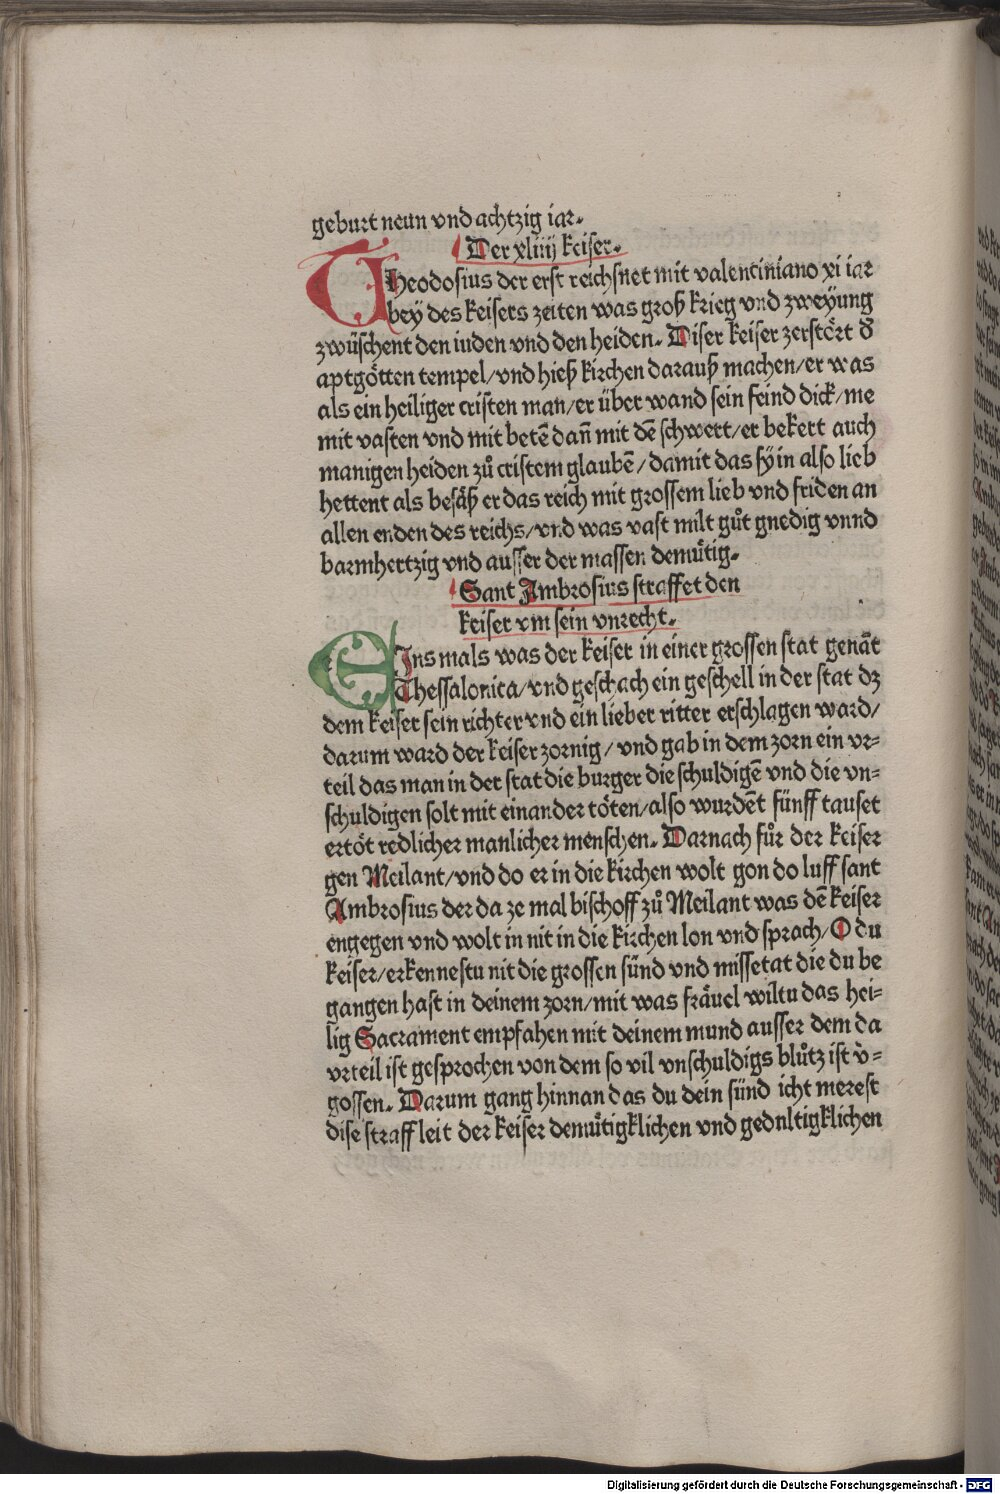 geburt neun vnd achtzig iar.
Der xliiij keiser.
Theodosius der erst reichsnet mit valentiniano xi iar
bey des keisers zeiten was groß krieg vnd zweyung
zwüschent den iuden vnd den heiden. Diser keiser zerstört d͛
aptgötten tempel/vnd hieß kirchen darauß machen/er was
als ein heiliger cristen man/er über wand sein feind dick/me
mit vasten vnd mit betē dañ mit dē schwert/er bekert auch
manigen heiden zů cristem glaubē/damit das sy in also lieb
hettent als besäß er das reich mit grossem lieb vnd friden an
allen enden des reichs/vnd was vast milt gůt gnedig vnnd
barmhertzig vnd ausser der massen demütig.
Sant Ambrosius straffet den
keiser vm sein vnrecht.
EIns mals was der keiser in einer grossen stat genāt
Thessalonica/vnd geschach ein geschell in der stat dz
dem keiser sein richter vnd ein lieber ritter erschlagen ward/
darum ward der keiser zornig/vnd gab in dem zorn ein vr⸗
teil das man in der stat die burger die schuldigē vnd die vn⸗
schuldigen solt mit einander töten/also wurdēt fünff tauset
ertöt redlicher manlicher menschen. Darnach fůr der keiser
gen Meilant/vnd do er in die kirchen wolt gon do luff sant
Ambrosius der da ze mal bischoff zů Meilant was dē keiser
engegen vnd wolt in nit in die kirchen lon vnd sprach/O du
keiser/erkennestu nit die grossen sünd vnd missetat die du be
gangen hast in deinem zorn/mit was fräuel wiltu das hei⸗
lig Sacrament empfahen mit deinem mund ausser dem da
vrteil ist gesprochen von dem so vil vnschuldigs blůtz ist v̓⸗
gossen. Darum gang hinnan das du dein sünd icht merest
dise straff leit der keiser demütigklichen vnd gednltigklichen
Digitalisierung gefördert durch die Deutsche Forschungsgemeinschaft - DFG